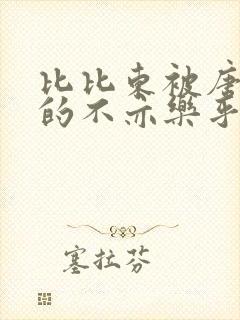 比比东被唐
的不亦樂乎
塞拉芬